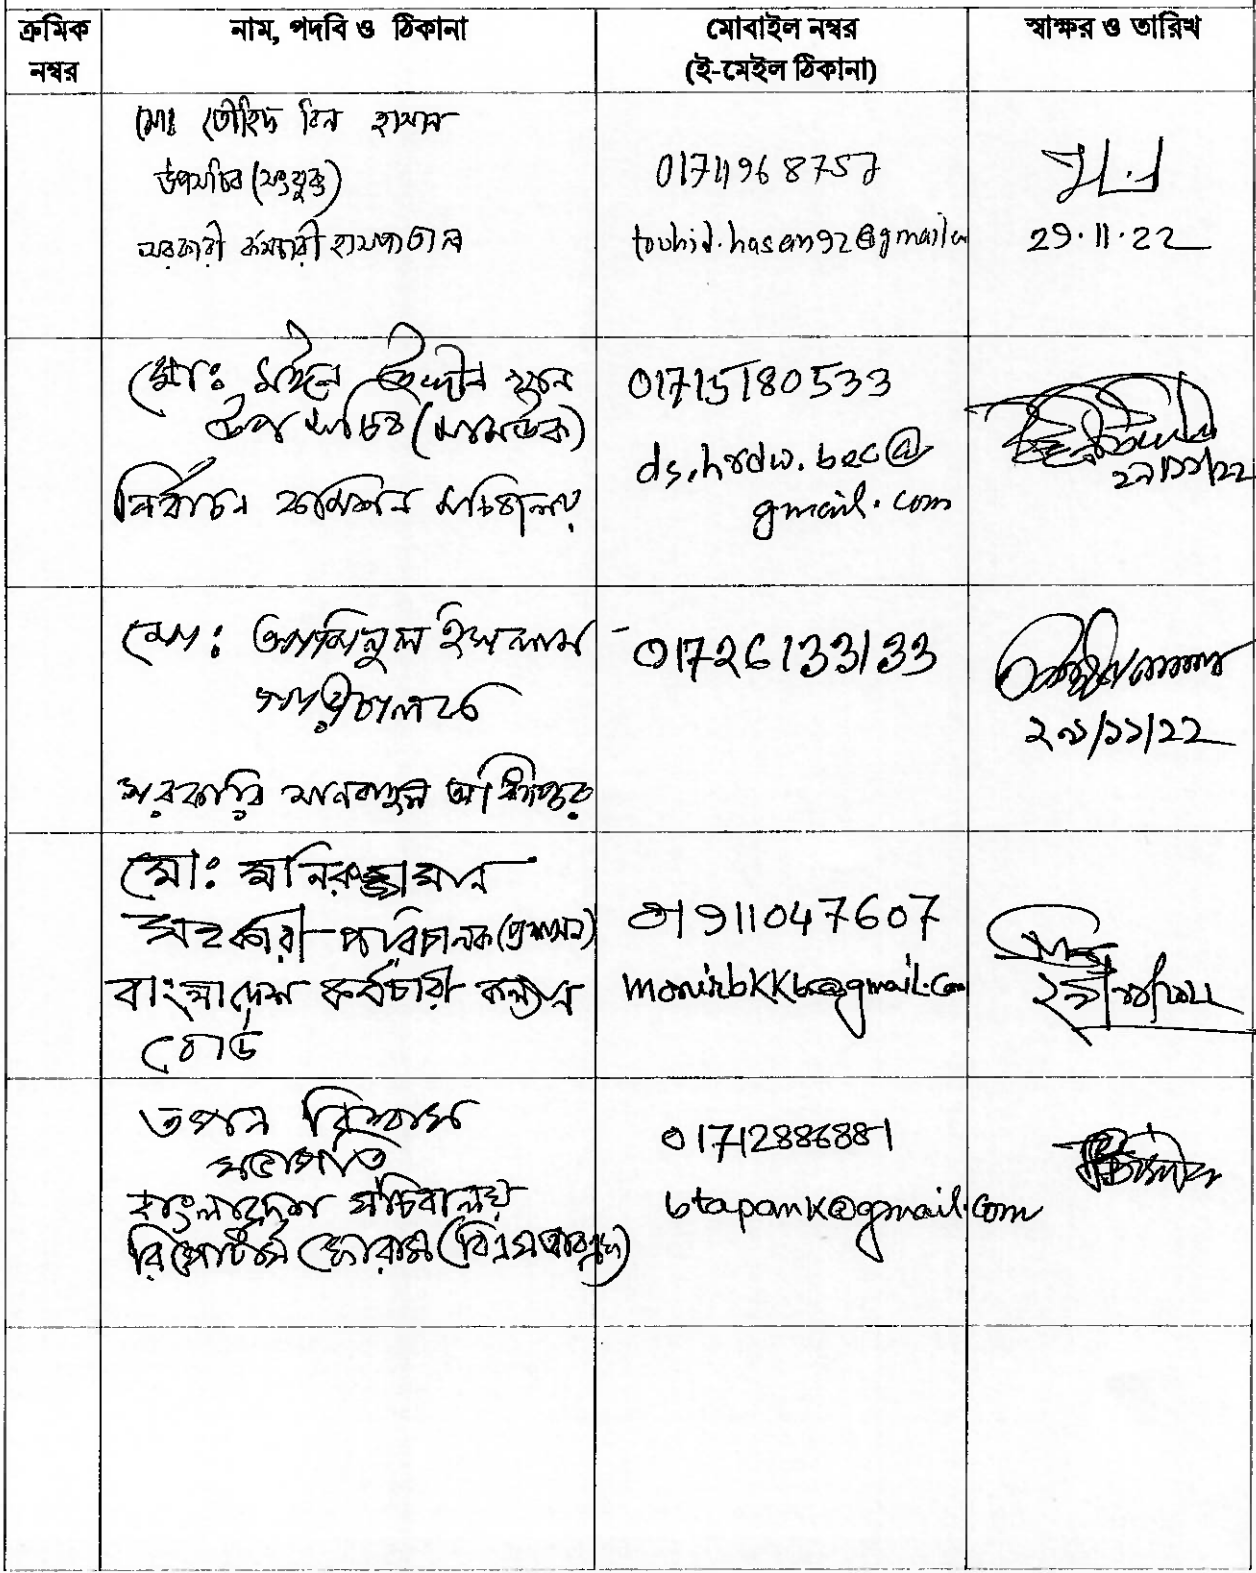 ক্রমিক নম্বর
নাম, পদবি ও ঠিকানা
মোবাইল নম্বর
(ই-মেইল ঠিকানা)
স্বাক্ষর ও তারিখ
মোঃ তৌহিদ বিন হাসান
উপসচিব (সংযুক্ত)
সরকারী কর্মচারী হাসপাতাল
01711968757
touhid.hasan92@gmail.co
29.11.22
মোঃ মঈন উদ্দীন খান
উপ সচিব (সামষ্টিক)
নির্বাচন কমিশন সচিবালয়
01715180533
ds.hrdw.bec@
gmail.com
২৯/১১/22
মোঃ আমিনুল ইসলাম
সরকারি যানবাহন অধিদপ্তর
01726133133
২৯/১১/22
মোঃ মনিরুজ্জামান
সহকারী পরিচালক (প্রশাসন)
বাংলাদেশ কর্মচারী কল্যাণ
বোর্ড
01911047607
monirbkkb@gmail.com
তপন বিশ্বাস
সভাপতি
বাংলাদেশ সচিবালয়
রিপোর্টার্স ফোরাম (বিএসআরএফ)
01712886881
btapank@gmail.com